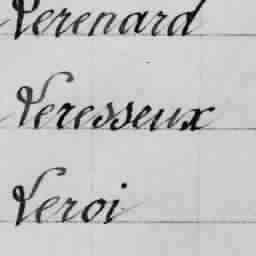 Lerenard
Leresseux
Leroi